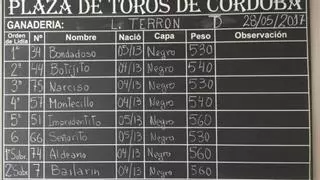 PLAZA DE TOROS DE CÓRDOBA
GANADERIA: L. TERRON D 28/05/2017
Orden de Lidia Nº Nombre Nació Capa Peso Observación
1º 34 Bondadoso 05/13 Negro 530
2º 44 Botijito 04/13 Negro 540
3º 75 Narciso 04/13 Negro 560
4º 57 Montecillo 04/13 Negro 540
5º 51 Imprudentito 05/13 Negro 560
6 66 Señorito 05/13 Negro 530
1º Sobr. 74 Aldeano 04/13 Negro 560
2º Sobr. 7 Bailarin 04/13 Negro 560